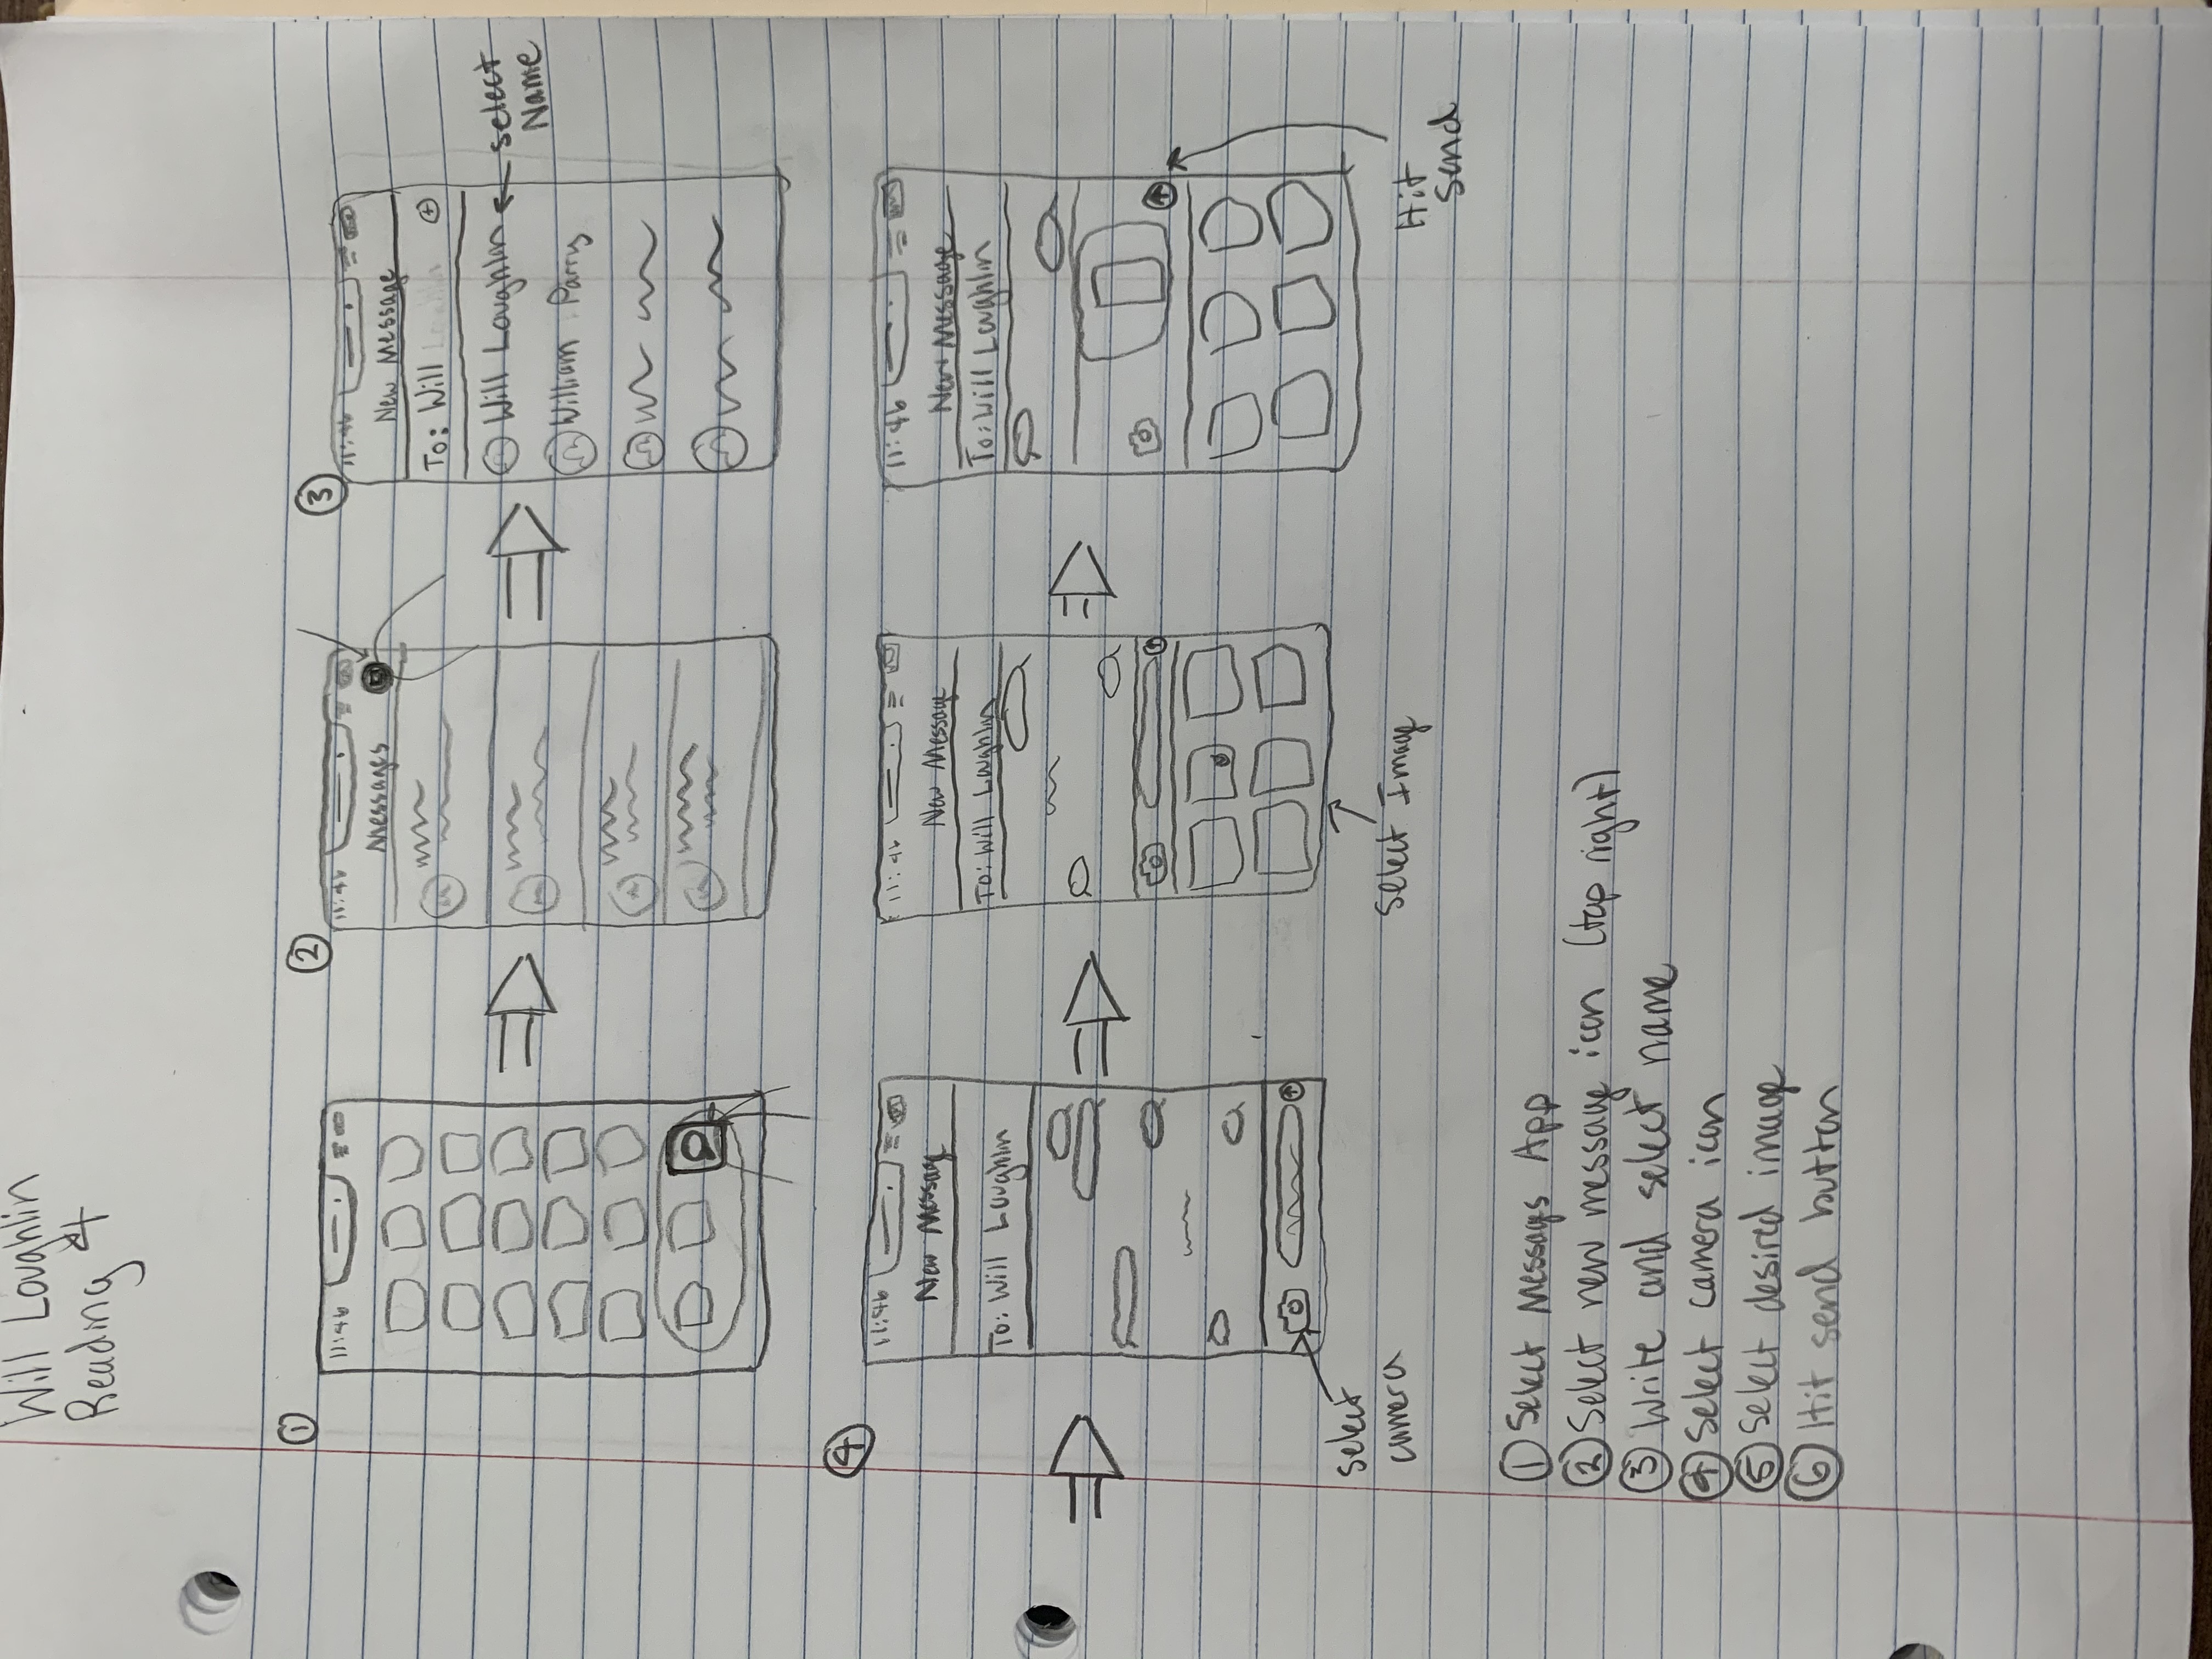 Will Loughlin
Reading 4
①
11:46
②
11:46
Messages
③
11:46
New Message
To: Will Loughlin
Will Loughlin
select
Name
William Parry
④
11:46
New Message
To: Will Loughlin
select
camera
11:46
New Message
To: Will Loughlin
Select Image
11:46
New Message
To: Will Loughlin
Hit
send
① Select Messages App
② Select new message icon (top right)
③ Write and select name
④ Select camera icon
⑤ Select desired image
⑥ Hit send button